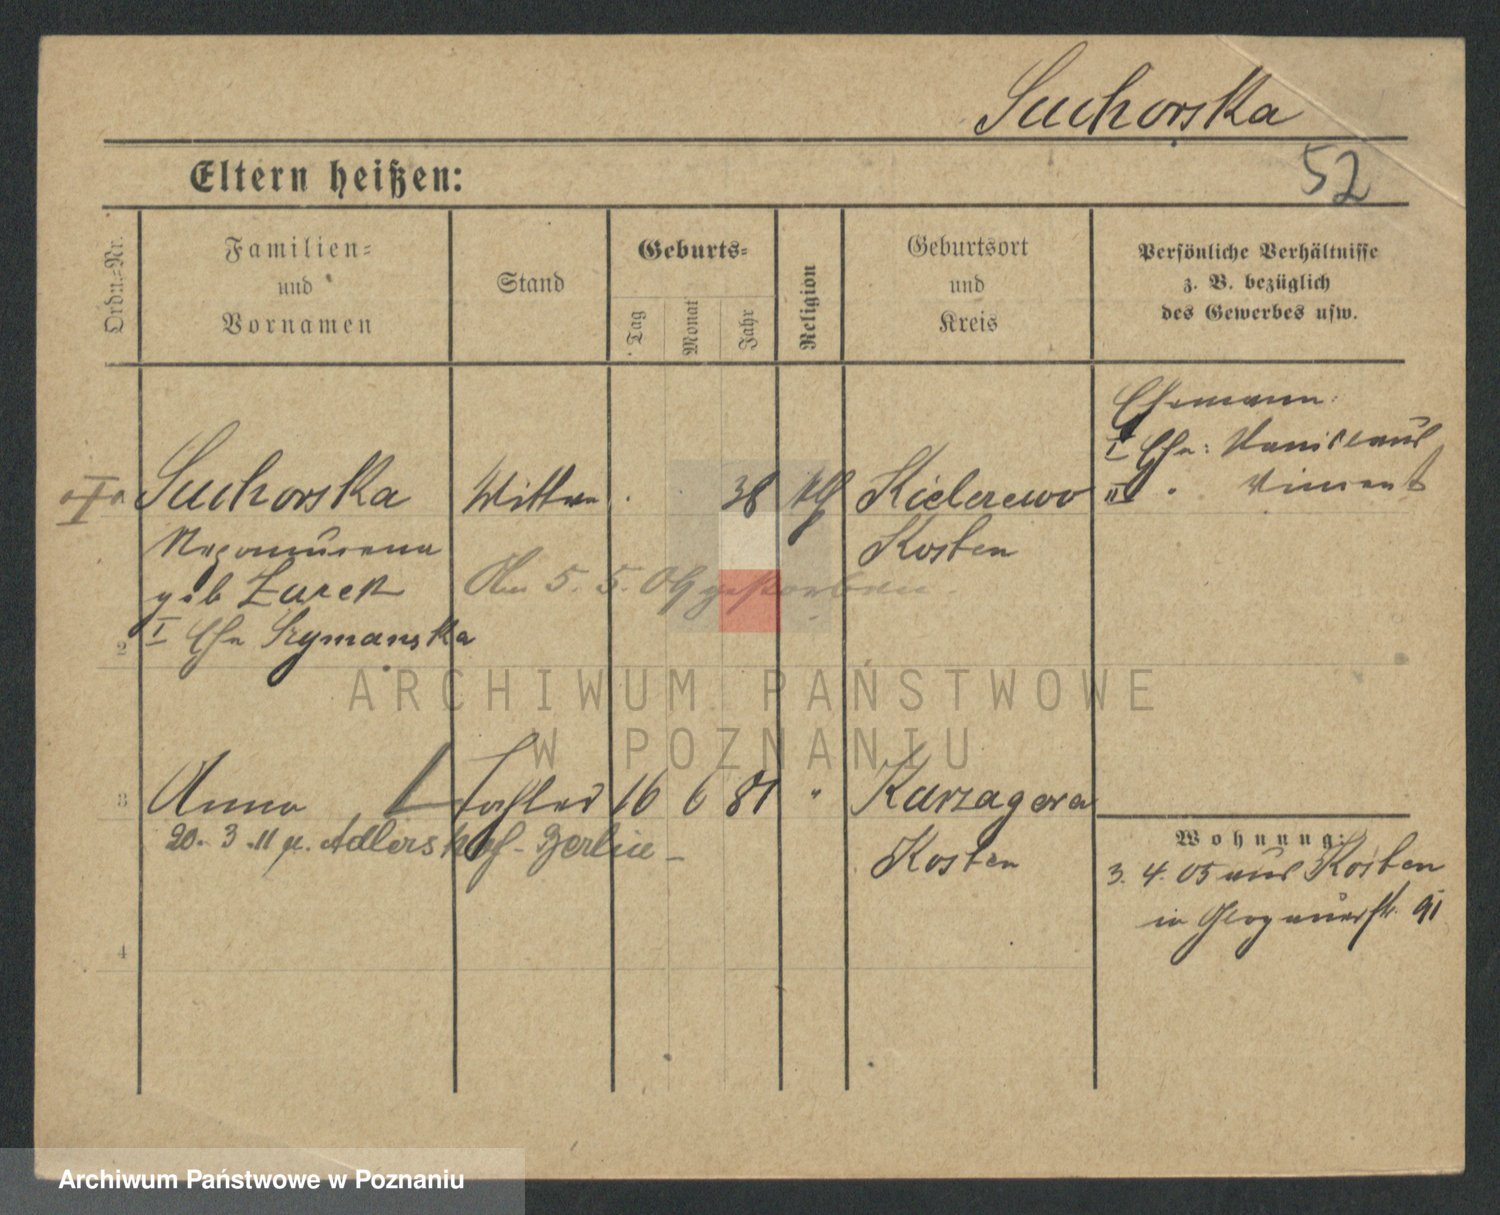 Suchorska
Eltern heißen:
52
Ordn.-Nr.
Familien-
und
Vornamen
Stand
Geburts-
Tag
Monat
Jahr
Religion
Geburtsort
und
Kreis
Persönliche Verhältnisse
z. B. bezüglich
des Gewerbes usw.
Ehemann:
I Ehe: Stanislaus
II " Vincent
Suchorska Wittwe 38 kth Kielczewo
Nepomucena Kosten
geb Zurek
Am 5. 5. 09 gestorben
I Ehe Szymanska
2
3 Anna Tochter 16 6 81 " Karzagora
20. 3. 11 n. Adlershof - Berlin
Kosten
Wohnung:
3. 4. 05 aus Kosten
in Glogauerstr. 91
4
ARCHIWUM PAŃSTWOWE
W POZNANIU
Archiwum Państwowe w Poznaniu